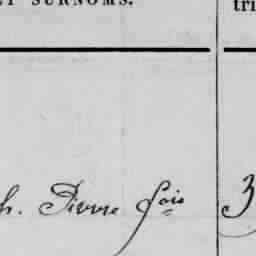 ET SURNOMS.
tri
h. Pierre fois
3